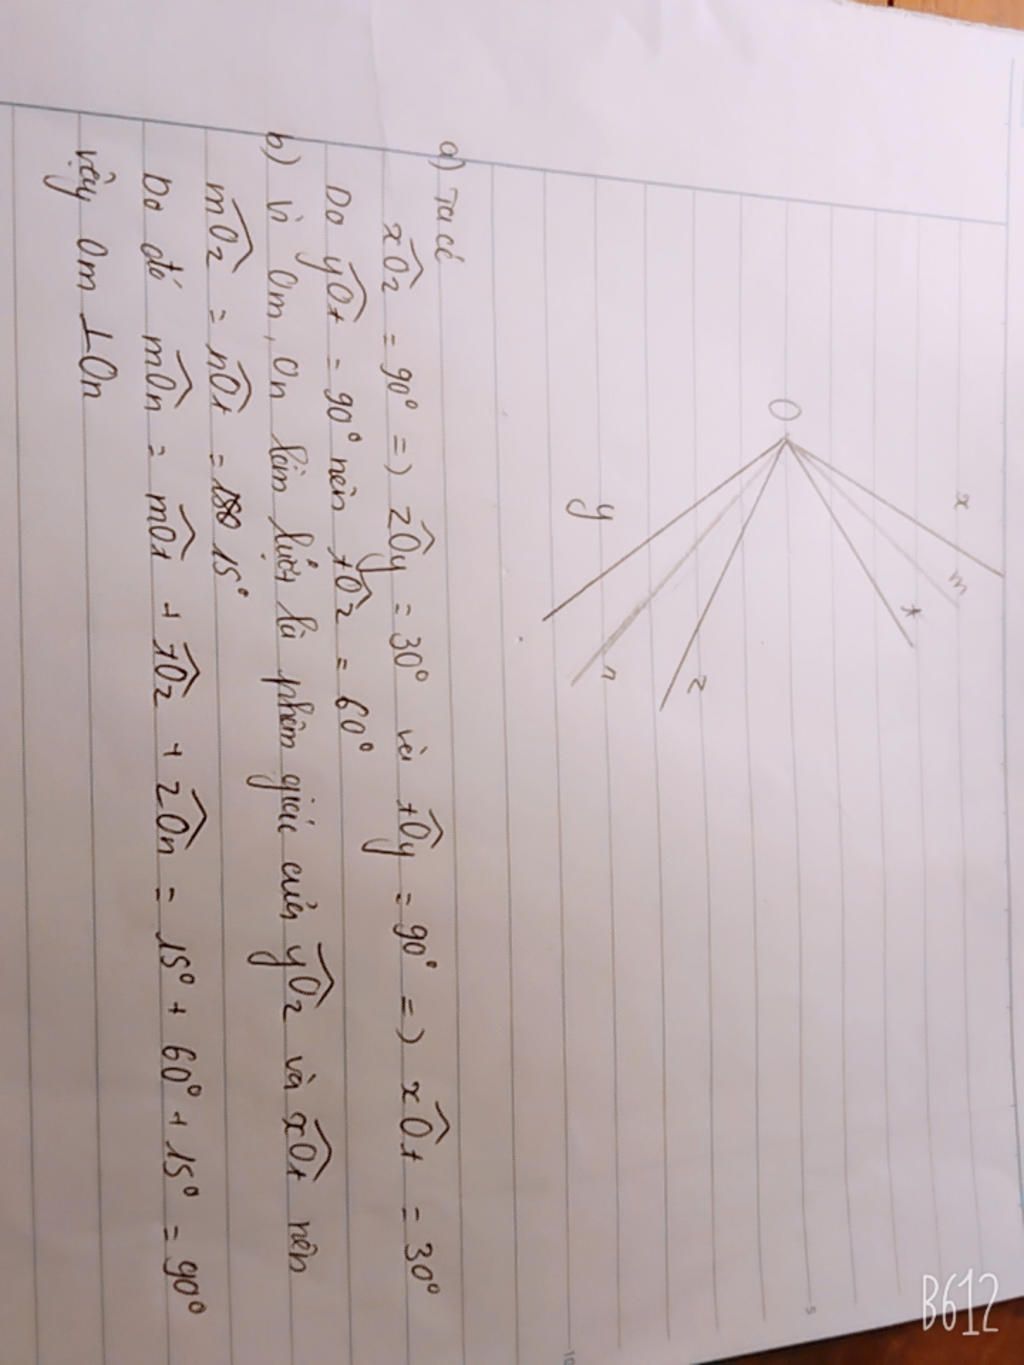 x
m
t
O
z
n
y
a) Ta có
xOz = 90° => zOy = 30° và tOy = 90° => xOt = 30°
Do yOt = 90° nên tOz = 60°
b) vì Om, On lần lượt là phân giác của yOz và xOt nên
mOz = nOt = 15°
Do đó mOn = mOt + tOz + zOn = 15° + 60° + 15° = 90°
vậy Om ⊥ On
5
10
B612